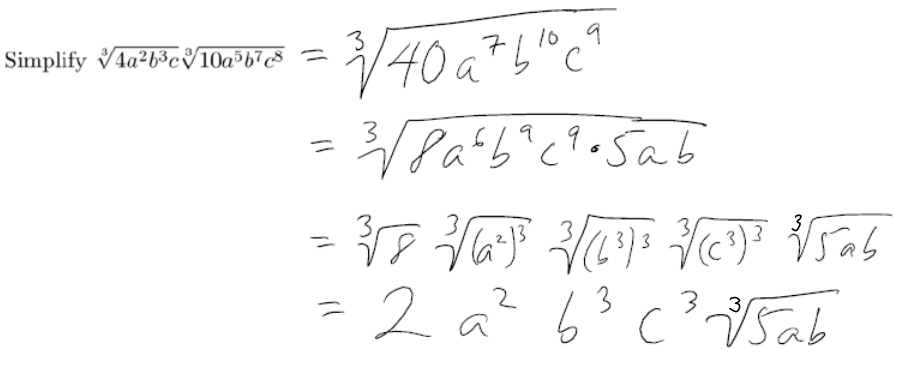 Simplify ∛(4a²b³c) ∛(10a⁵b⁷c⁸) = ∛(40a⁷b¹⁰c⁹)
= ∛(8a⁶b⁹c⁹ • 5ab)
= ∛8 ∛((a²)³) ∛((b³)³) ∛((c³)³) ∛(5ab)
= 2 a² b³ c³ ∛(5ab)